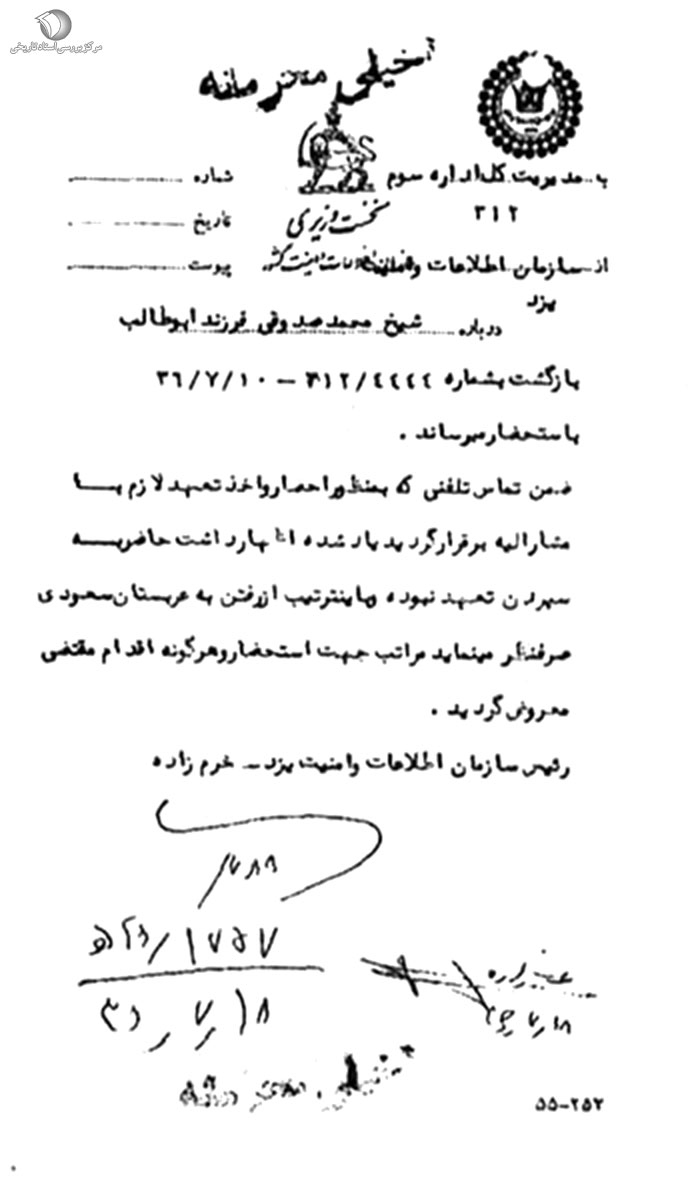 مرکز بررسی اسناد تاریخی
خیلی محرمانه
به مدیریت کل اداره سوم
۳۱۲
شماره
نخست وزیری
تاریخ
از سازمان اطلاعات و امنیت کشور
پیوست
یزد
درباره شیخ محمد صدوقی فرزند ابوطالب
بازگشت بشماره ۳۱۲/۴۲۴۴ – ۳۶/۷/۱۰
باستحضار میرساند .
ضمن تماس تلفنی که بمنظور احضار و اخذ تعهد لازم با
مشارالیه برقرار گردید یاد شده اظهار داشت حاضر به
سپردن تعهد نبوده و باینترتیب از رفتن به عربستان سعودی
صرفنظر مینماید مراتب جهت استحضار و هرگونه اقدام مقتضی
معروض گردید .
رئیس سازمان اطلاعات و امنیت یزد – خرم زاده
۵۵-۲۵۲